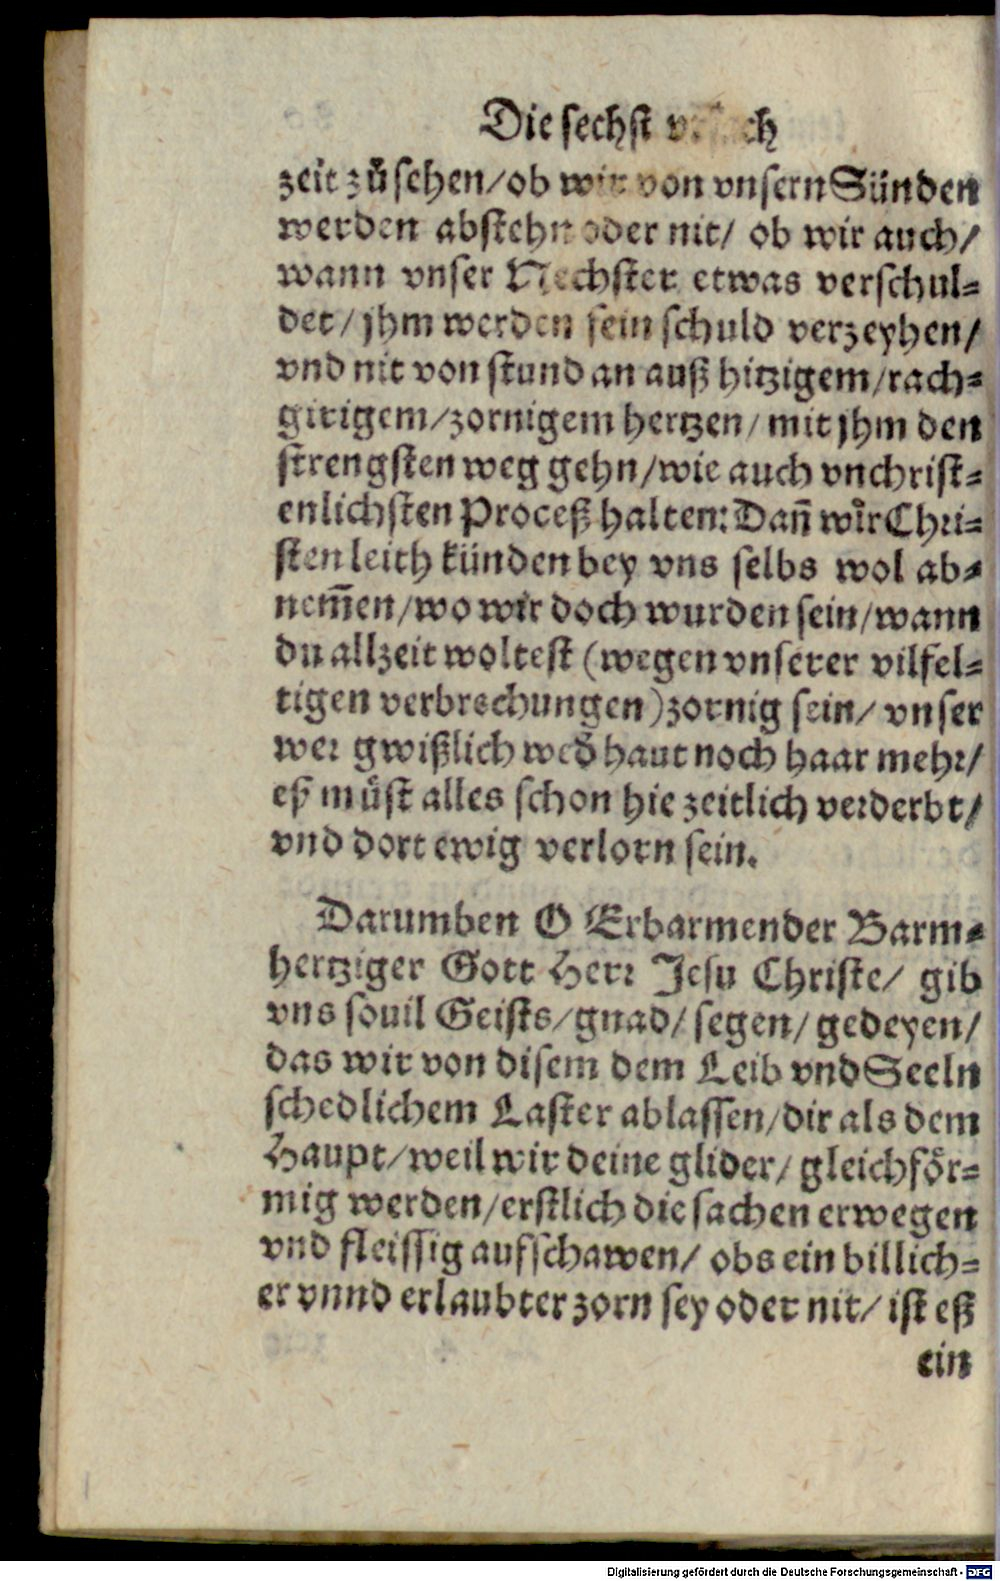 Die sechst vrsach
zeit zůsehen/ob wir von vnsern Sünden
werden abstehn oder nit/ ob wir auch/
wann vnser Nechster etwas verschul⸗
det/ jhm werden sein schuld verzeyhen/
vnd nit von stund an auß hitzigem/rach⸗
girigem/zornigem hertzen/ mit jhm den
strengsten weg gehn/wie auch vnchrist⸗
enlichsten Proceß halten: Dañ wir Chri⸗
sten leith künden bey vns selbs wol ab⸗
nem̃en/wo wir doch wurden sein/wann
du allzeit woltest (wegen vnserer vilfel⸗
tigen verbrechungen) zornig sein/ vnser
wer gwißlich wed̕ haut noch haar mehr/
eß můst alles schon hie zeitlich verderbt/
vnd dort ewig verlorn sein.
Darumben O Erbarmender Barm⸗
hertziger Gott Herr Jesu Christe/ gib
vns souil Geists/gnad/ segen/ gedeyen/
das wir von disem dem Leib vnd Seeln
schedlichem Laster ablassen/dir als dem
Haupt/weil wir deine glider/ gleichför⸗
mig werden/erstlich die sachen erwegen
vnd fleissig aufschawen/ obs ein billich⸗
er vnnd erlaubter zorn sey oder nit/ ist eß
ein
Digitalisierung gefördert durch die Deutsche Forschungsgemeinschaft - DFG